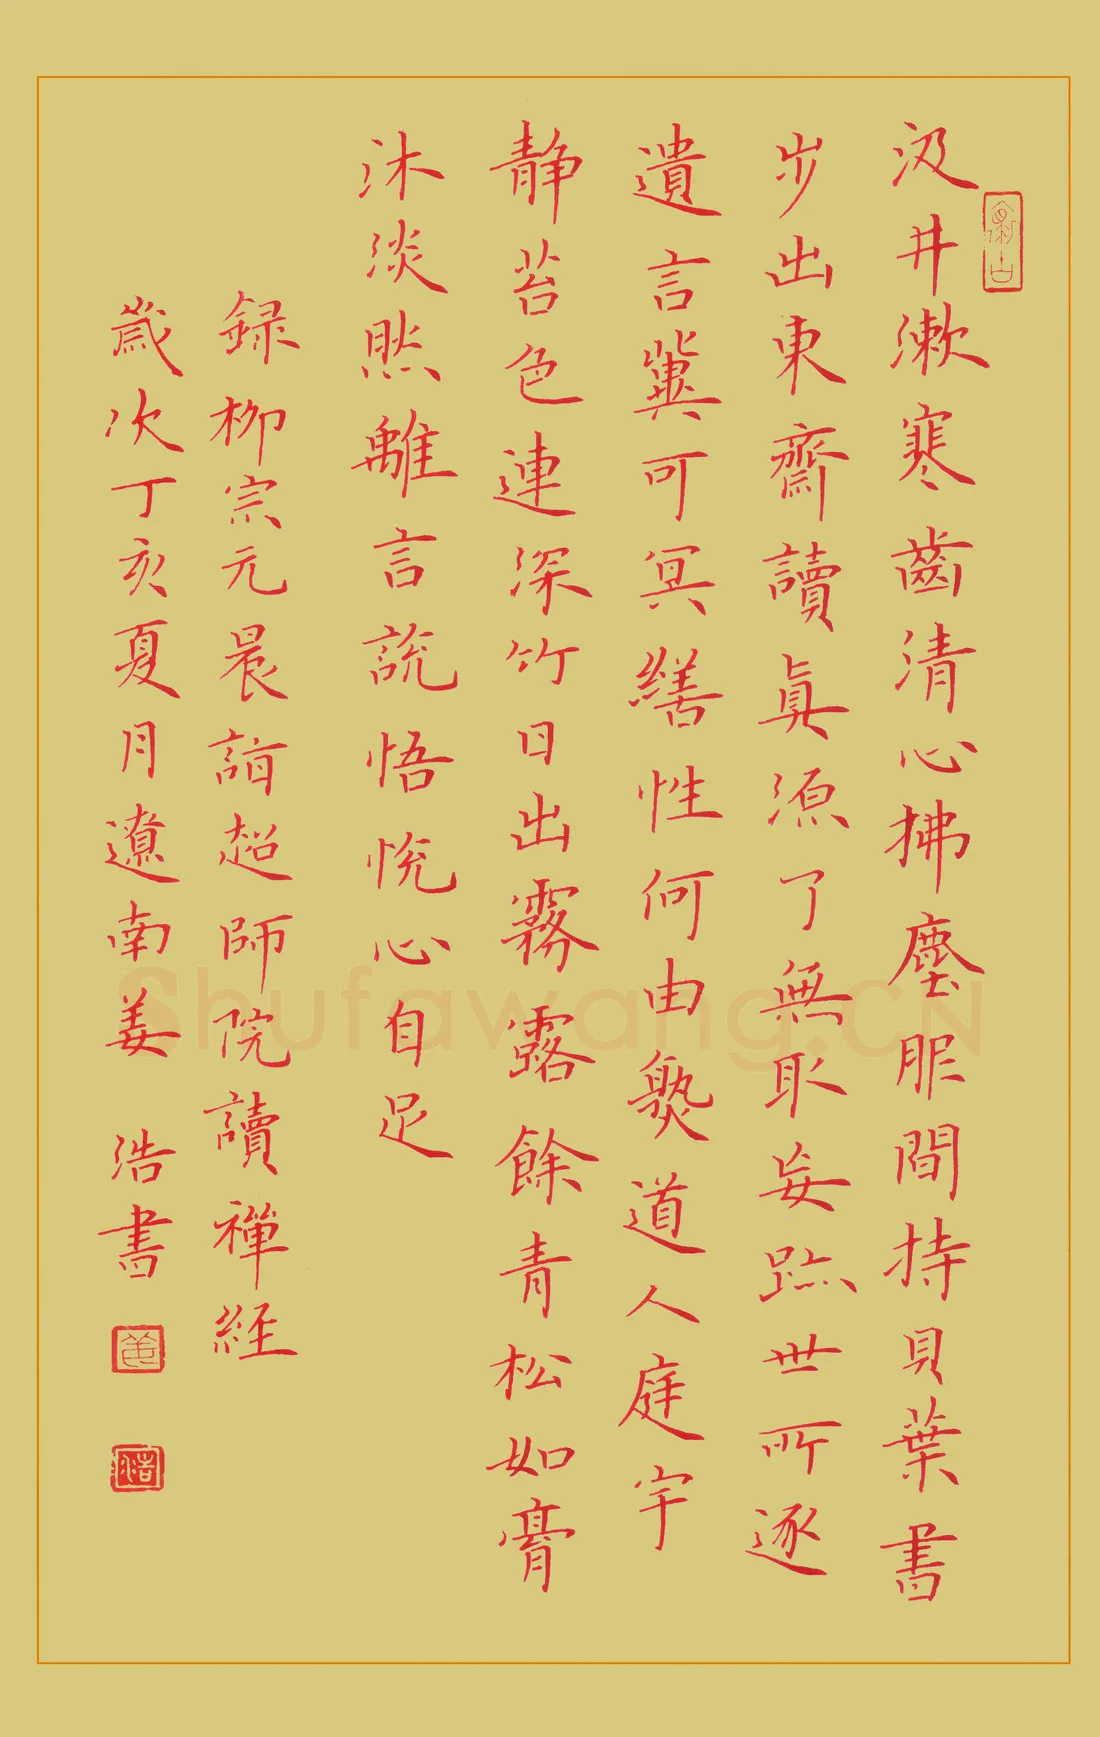 汲井漱寒齒清心拂塵服間持貝葉書
步出東齋讀眞源了無取妄跡世所逐
遺言冀可冥繕性何由熟道人庭宇
静苔色連深竹日出霧露餘青松如膏
沐淡然離言説悟悦心自足
録柳宗元晨詣超師院讀禪経
歲次丁亥夏月遼南姜浩書
Shufawang.CN